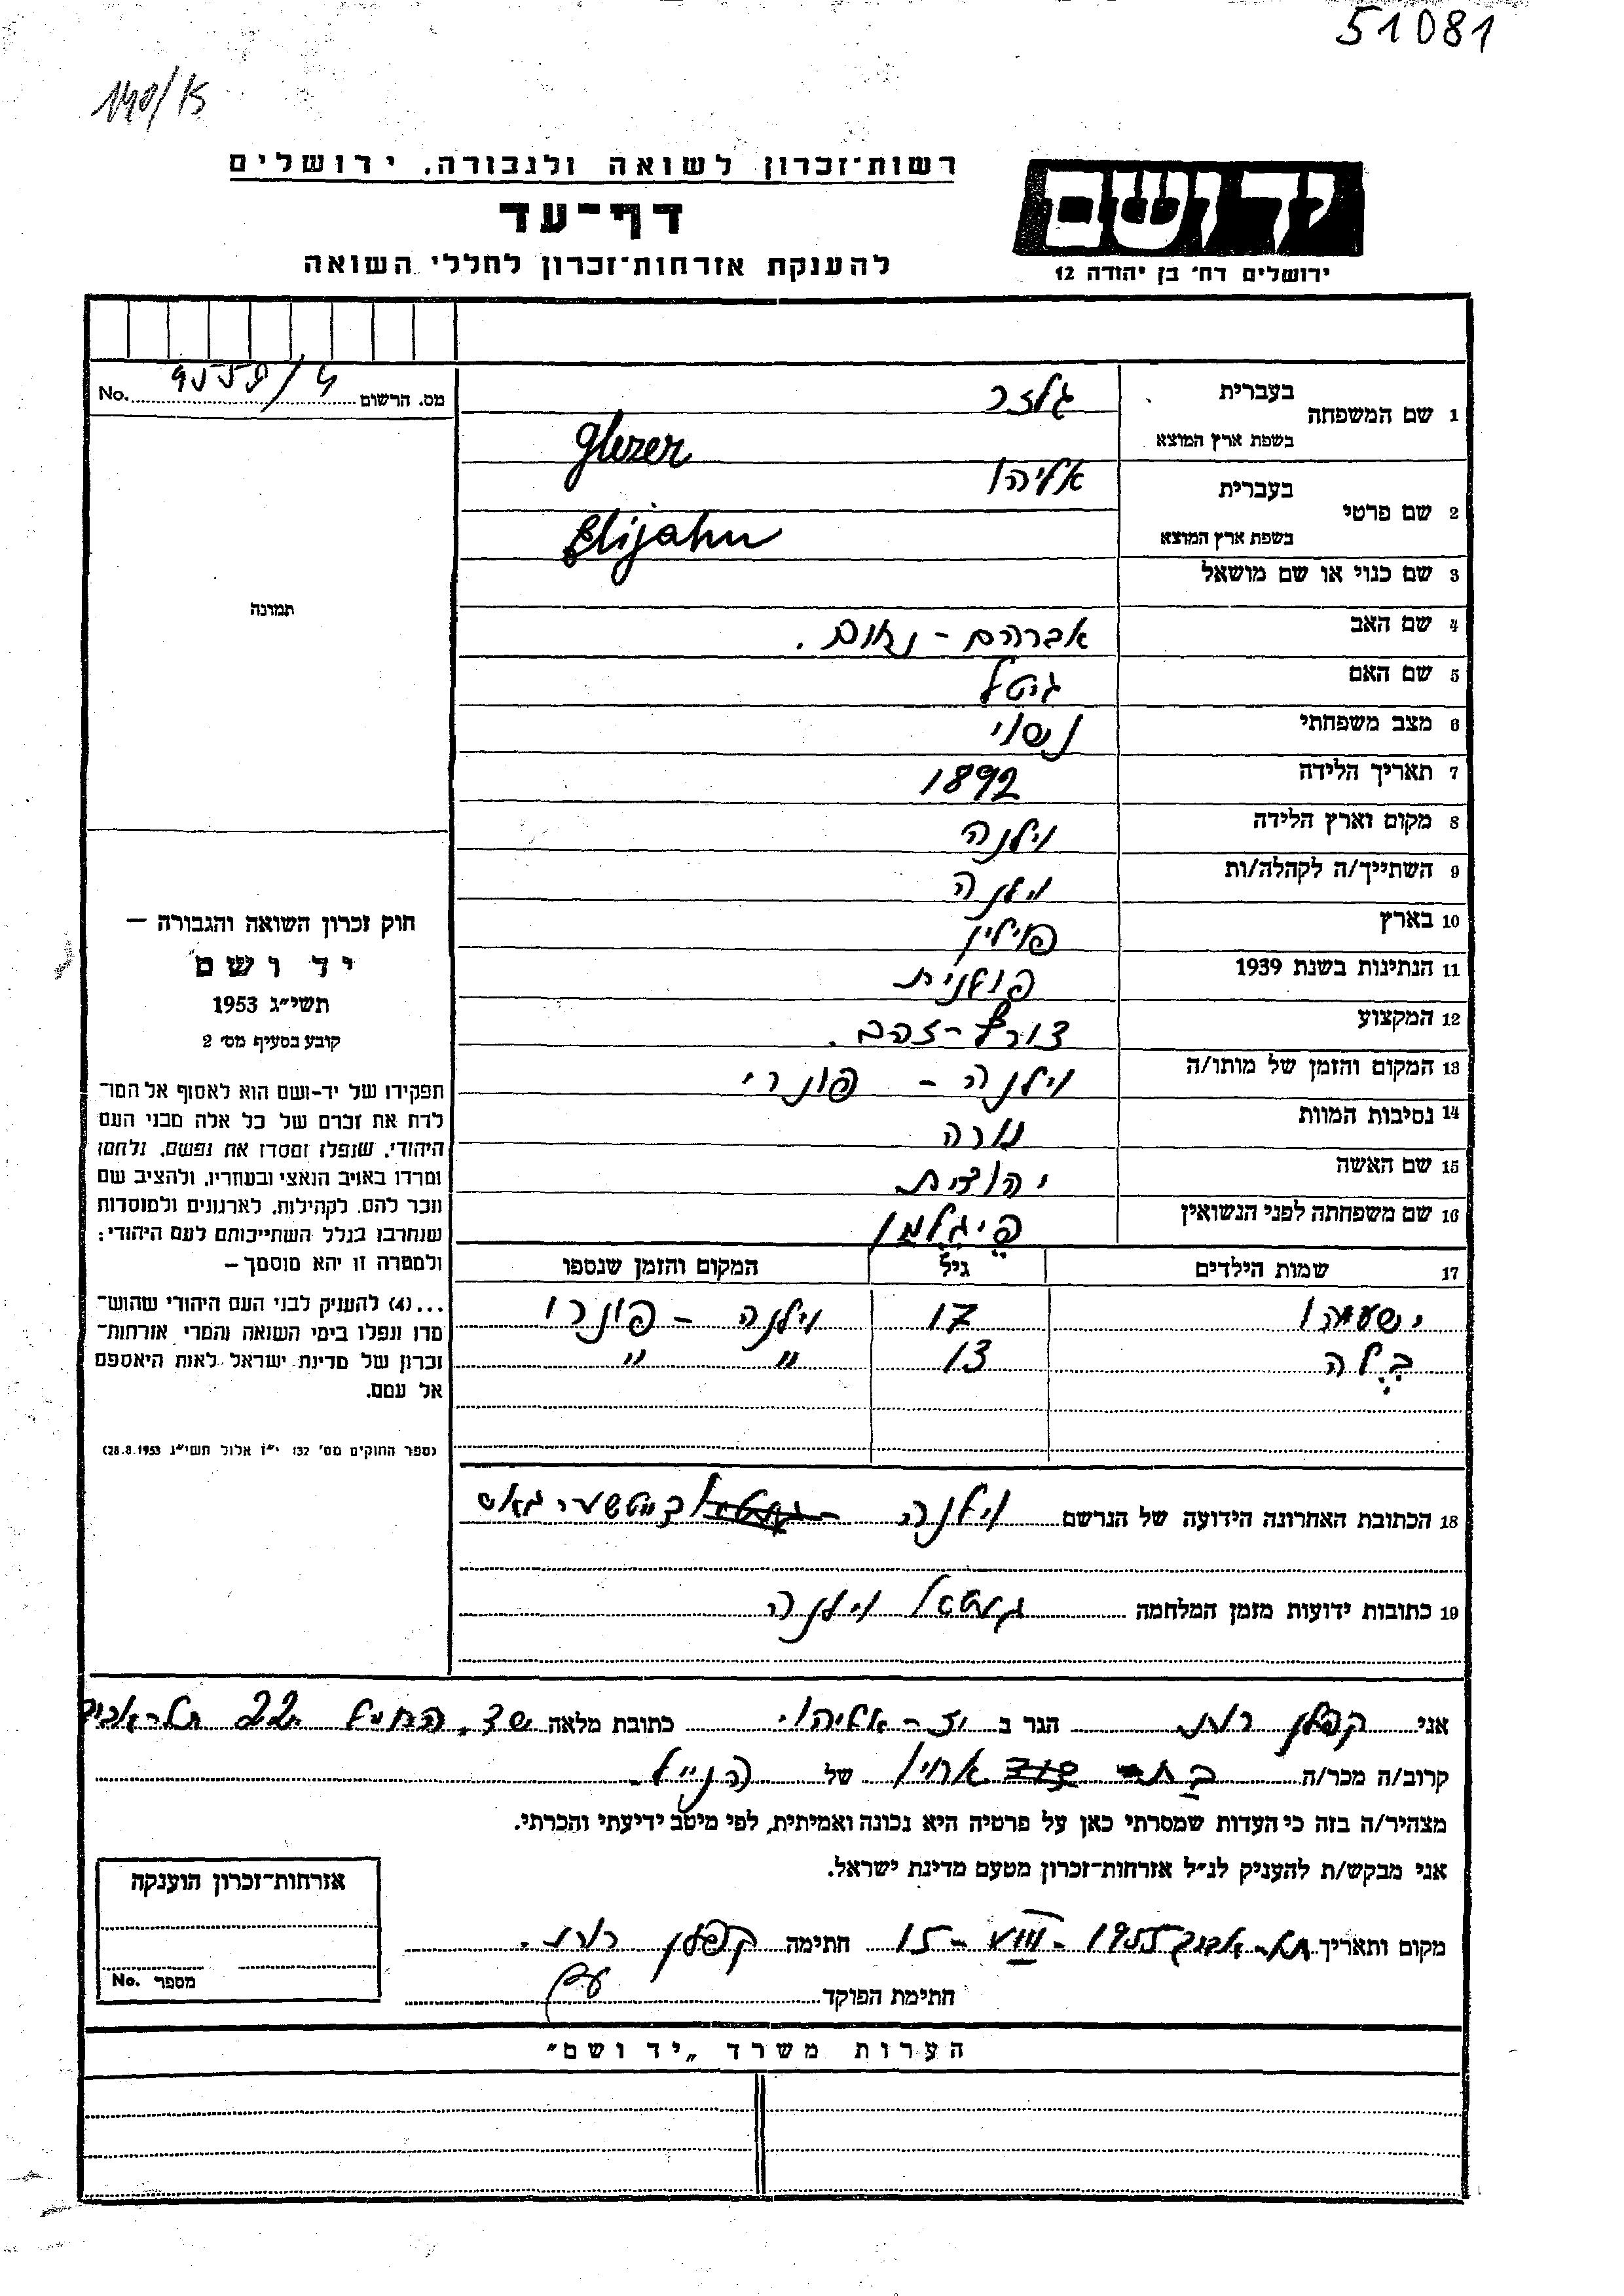 51081
140/15
רשות־זכרון לשואה ולגבורה, ירושלים
יד ושם
דף־עד
להענקת אזרחות־זכרון לחללי השואה
ירושלים רח׳ בן יהודה 12
מס. הרשום No.
1 שם המשפחה בעברית גלזר
בשפת ארץ המוצא Glezer
2 שם פרטי בעברית אליהו
בשפת ארץ המוצא Elijahu
3 שם כנוי או שם מושאל
4 שם האב אברהם - נחום.
5 שם האם גיטל
6 מצב משפחתי נשוי
7 תאריך הלידה 1892
8 מקום וארץ הלידה וילנה
9 השתייך/ה לקהלה/ות וילנה
10 בארץ פולין
11 הנתינות בשנת 1939 פולנית
12 המקצוע צורף-זהב.
13 המקום והזמן של מותו/ה וילנה - פונרי
14 נסיבות המוות נורה
15 שם האשה יהודית
16 שם משפחתה לפני הנשואין פיגלמן
17 שמות הילדים גיל המקום והזמן שנספו
ישעיהו 17 וילנה - פונרי
בילה 13 " "
18 הכתובת האחרונה הידועה של הנרשם וילנה
19 כתובות ידועות מזמן המלחמה גיטאו וילנה
תמונה
חוק זכרון השואה והגבורה —
יד ושם
תשי״ג 1953
קובע בסעיף מס׳ 2
תפקידו של יד-ושם הוא לאסוף אל המו־
לדת את זכרם של כל אלה מבני העם
היהודי, שנפלו ומסרו את נפשם, נלחמו
ומרדו באויב הנאצי ובעוזריו, ולהציב שם
וזכר להם, לקהילות, לארגונים ולמוסדות
שנחרבו בגלל השתייכותם לעם היהודי:
ולמטרה זו יהא מוסמך —
...(4) להעניק לבני העם היהודי שהוש־
מדו ונפלו בימי השואה והמרי אזרחות־
זכרון של מדינת ישראל לאות היאספם
אל עמם.
(ספר החוקים מס׳ 132 י״ז אלול תשי״ג 28.8.1953)
אני קפלן רות הגר ב יד-אליהו כתובת מלאה שד. החי״ל 22 תל-אביב
קרוב/ה מכר/ה בת אחיו של הנ״ל
מצהיר/ה בזה כי העדות שמסרתי כאן על פרטיה היא נכונה ואמיתית, לפי מיטב ידיעתי והכרתי.
אני מבקש/ת להעניק לנ״ל אזרחות־זכרון מטעם מדינת ישראל.
מקום ותאריך תל-אביב 15 - VIII - 1955 חתימה קפלן רות.
חתימת הפוקד
אזרחות־זכרון הוענקה
מספר No.
הערות משרד „יד ושם״